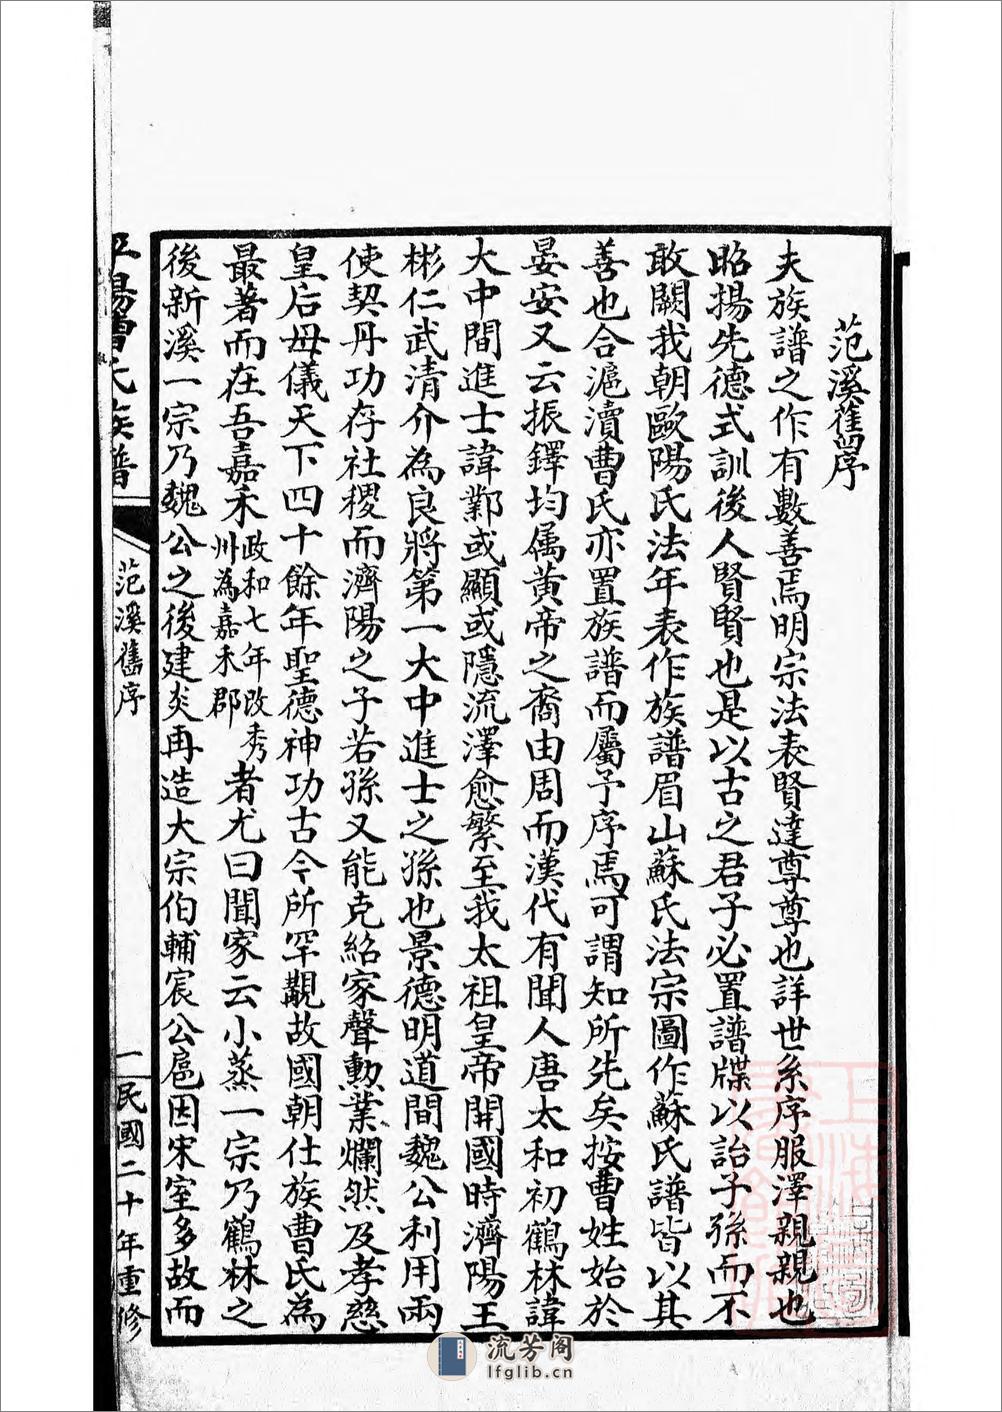 范溪舊序
夫族譜之作有數善焉明宗法表賢達尊尊也詳世系序服澤親親也
昭揚先德式訓後人賢賢也是以古之君子必置譜牒以詒子孫而不
敢闕我朝歐陽氏法年表作族譜眉山蘇氏法宗圖作蘇氏譜皆以其
善也合滬瀆曹氏亦置族譜而屬予序焉可謂知所先矣按曹姓始於
晏安又云振鐸均属黄帝之裔由周而漢代有聞人唐太和初鶴林諱
大中間進士諱鄴或顯或隱流澤愈繁至我太祖皇帝開國時濟陽王
彬仁武清介為良將第一大中進士之孫也景德明道間魏公利用兩
使契丹功存社稷而濟陽之子若孫又能克紹家聲勲業爛然及孝慈
皇后母儀天下四十餘年聖德神功古今所罕覯故國朝仕族曹氏為
最著而在吾嘉禾政和七年改秀州為嘉禾郡者尤曰聞家云小蒸一宗乃鶴林之
後新溪一宗乃魏公之後建炎再造大宗伯輔宸公扈因宋室多故而
平陽曹氏族譜
范溪舊序
一
民國二十年重修
流芳阁
lfglib.cn